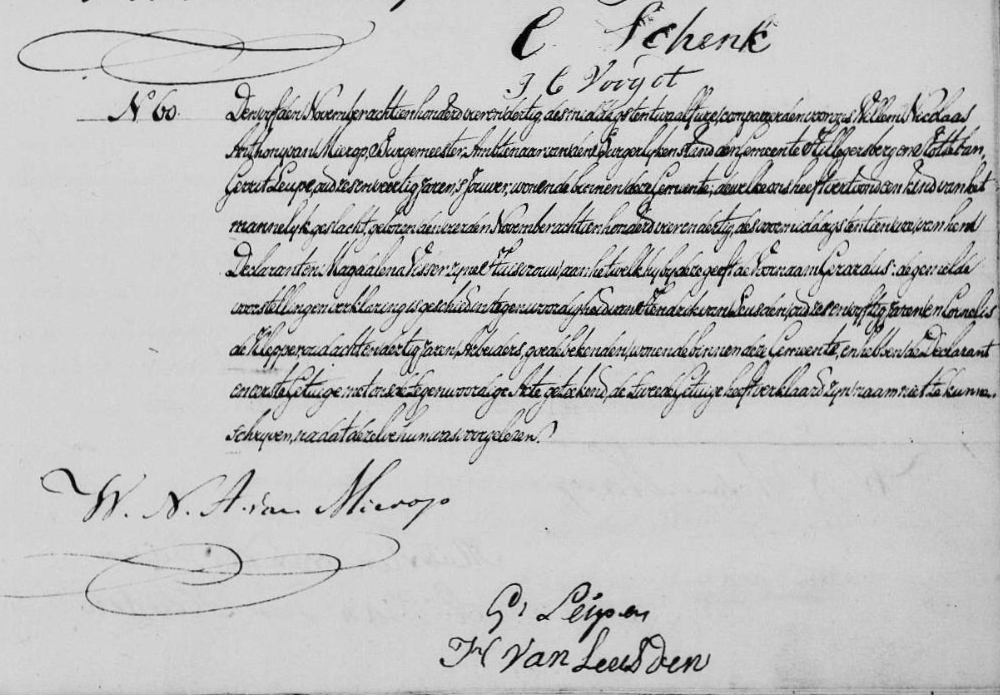 C Schenk
J C Voogt
No 60. Den vijfden November achttienhonderd vierendertig, des middags ten twaalf ure, compareerden voor ons Willem Nicolaas
Anthony van Mierop, Burgemeester Ambtenaar van den Burgerlyken stand der Gemeente Hillegersberg en Rottaban,
Gerrit Leupe, oud zesenveertig jaren, bouwer, wonende binnen deze Gemeente, dewelke ons heeft vertoond een kind van het
mannelyk geslacht, geboren den vierden November achttienhonderd vierendertig, des voormiddags ten tien ure, van hem
Declarant en Magdalena Visser zyne Huisvrouw, aan het welk hy by deze geeft de Voornaam Gerardus: de gemelde
voorstelling en verklaring is geschied in tegenwoordigheid van Hendrik van Leusden, oud zesenvyftig jaren en Cornelis
de Klepper oud achtendertig jaren, Arbeiders, goede bekenden, wonende binnen deze Gemeente, en hebben de Declarant
en eerste Getuige met ons deze tegenwoordige Akte getekend, de tweede Getuige heeft verklaard zyn naam niet te kunnen
schryven, na dat dezelve hun was voorgelezen.
W. N. A. van Mierop
Gt Leupen
H Van Leusden